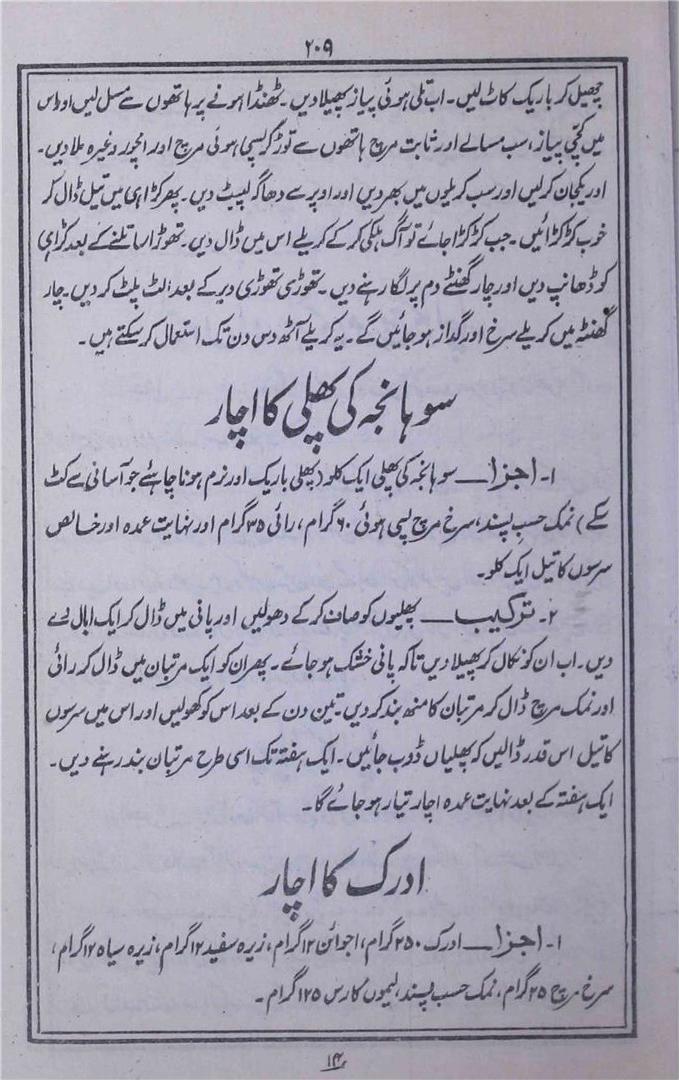 ۲۰۹
چھیل کر باریک کاٹ لیں۔ اب تلی ہوئی پیاز پھیلا دیں۔ ٹھنڈا ہونے پر ہاتھوں سے مسل لیں اور اس
میں کچی پیاز، سب مسالے اور ثابت مرچ ہاتھوں سے توڑ کر پسی ہوئی مرچ اور امچور وغیرہ ملا دیں۔
اور یکجان کر لیں اور سب کریلوں میں بھر دیں اور اوپر سے دھاگہ لپیٹ دیں۔ پھر کڑاہی میں تیل ڈال کر
خوب کڑکڑائیں۔ جب کڑکڑا جائے تو آگ ہلکی کر کے کریلے اس میں ڈال دیں۔ تھوڑا سا تلنے کے بعد کڑاہی
کو ڈھانپ دیں اور چار گھنٹے دم پر لگا رہنے دیں۔ تھوڑی تھوڑی دیر کے بعد الٹ پلٹ کر دیں۔ چار
گھنٹہ میں کریلے سرخ اور گداز ہو جائیں گے۔ یہ کریلے آٹھ دس دن تک استعمال کر سکتے ہیں۔
سوہانجہ کی پھلی کا اچار
۱۔ اجزا ــــ سوہانجہ کی پھلی ایک کلو (پھلی باریک اور نرم ہونا چاہئے جو آسانی سے کٹ
سکے) نمک حسب پسند، سرخ مرچ پسی ہوئی ۶۰ گرام، رائی ۳۵ گرام اور نہایت عمدہ اور خالص
سرسوں کا تیل ایک کلو۔
۲۔ ترکیب ــــ پھلیوں کو صاف کر کے دھو لیں اور پانی میں ڈال کر ایک ابال دے
دیں۔ اب ان کو نکال کر پھیلا دیں تاکہ پانی خشک ہو جائے۔ پھر ان کو ایک مرتبان میں ڈال کر رائی
اور نمک مرچ ڈال کر مرتبان کا منھ بند کر دیں۔ تین دن کے بعد اس کو کھولیں اور اس میں سرسوں
کا تیل اس قدر ڈالیں کہ پھلیاں ڈوب جائیں۔ ایک ہفتہ تک اسی طرح مرتبان بند رہنے دیں۔
ایک ہفتہ کے بعد نہایت عمدہ اچار تیار ہو جائے گا۔
ادرک کا اچار
۱۔ اجزا ــــ ادرک ۲۵۰ گرام، اجوائن ۱۲ گرام، زیرہ سفید ۱۲ گرام، زیرہ سیاہ ۱۲ گرام،
سرخ مرچ ۲۵ گرام، نمک حسب پسند، لیموں کا رس ۱۲۵ گرام۔